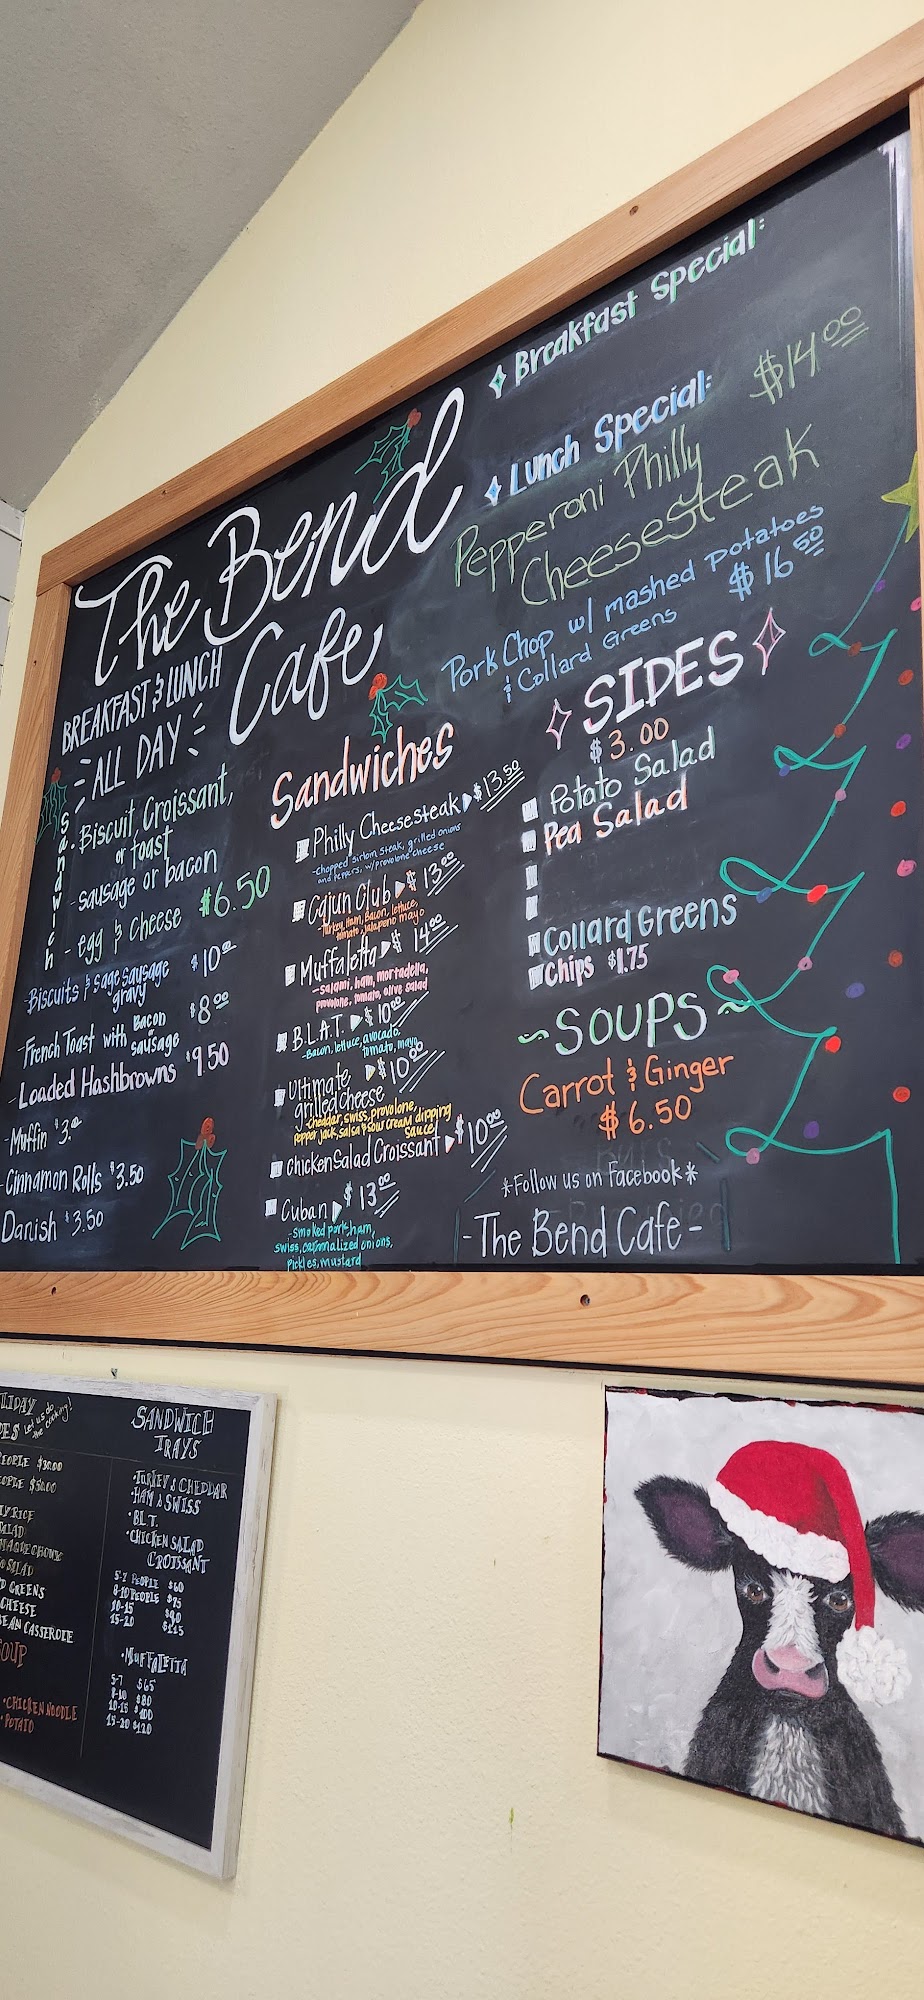 The Bend
Cafe
BREAKFAST & LUNCH
ALL DAY
Sandwich
- Biscuit, Croissant,
or Toast
- sausage or bacon
- egg & cheese $6.50
- Biscuits & sage sausage
gravy $10.00
- French Toast with Bacon
or sausage $8.00
- Loaded Hashbrowns $9.50
- Muffin $3.00
- Cinnamon Rolls $3.50
Danish $3.50
Sandwiches
Philly Cheesesteak $13.50
- Chopped sirloin steak, grilled onions
and peppers, w/provolone cheese
Cajun Club $13.00
- Turkey, Ham, Bacon, lettuce,
tomato, jalapeno mayo
Muffaletta $14.00
- salami, ham, mortadella,
provolone, tomato, olive salad
B.L.A.T. $10.00
- Bacon, lettuce, avocado,
tomato, mayo
Ultimate
grilled cheese $10.00
- cheddar, swiss, provolone,
pepper jack, salsa & sour cream dipping
sauce
Chicken Salad Croissant $10.00
Cuban $13.00
- smoked pork, ham,
swiss, carmalized onions,
pickles, mustard
Breakfast Special:
Lunch Special: $14.00
Pepperoni Philly
Cheesesteak
Pork Chop w/ mashed potatoes
& Collard Greens $16.50
SIDES
$3.00
Potato Salad
Pea Salad
Collard Greens
Chips $1.75
~SOUPS~
Carrot & Ginger
$6.50
*Follow us on Facebook*
- The Bend Cafe -
LIDAY
ES Let us do
the cooking!
EOPLE $30.00
EOPLE $50.00
RICE
SALAD
MAQUE CHOUX
SALAD
D GREENS
CHEESE
EAN CASSEROLE
OUP
• CHICKEN NOODLE
• POTATO
SANDWICH
TRAYS
• TURKEY & CHEDDAR
• HAM & SWISS
• BLT.
• CHICKEN SALAD
CROISSANT
5-7 PEOPLE $60
8-10 PEOPLE $75
10-15 $90
15-20 $115
• MUFFALETTA
5-7 $65
8-10 $80
10-15 $100
15-20 $120